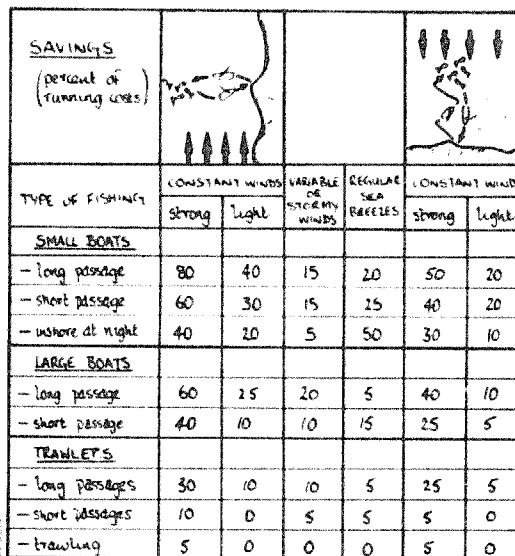 SAVINGS
(percent of
running costs)
TYPE OF FISHING
CONSTANT WINDS
strong light
VARIABLE
OR
STORMY
WINDS
REGULAR
SEA
BREEZES
CONSTANT WIND
strong light
SMALL BOATS
- long passage 80 40 15 20 50 20
- short passage 60 30 15 25 40 20
- inshore at night 40 20 5 50 30 10
LARGE BOATS
- long passage 60 25 20 5 40 10
- short passage 40 10 10 15 25 5
TRAWLERS
- long passages 30 10 10 5 25 5
- short passages 10 0 5 5 5 0
- trawling 5 0 0 0 5 0